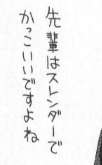 先輩はスレンダーで
かっこいいですよね